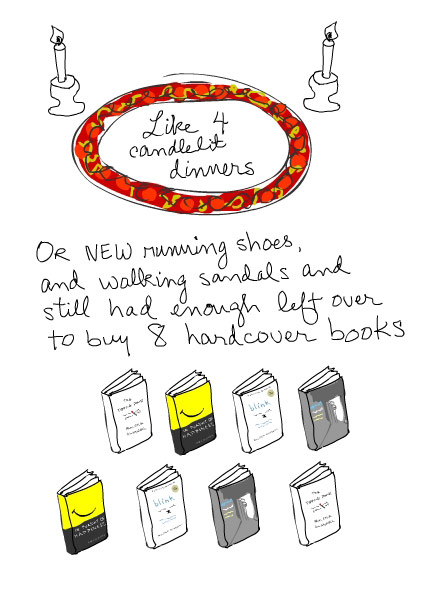 Like 4
candlelit
dinners
OR NEW running shoes,
and walking sandals and
still had enough left over
to buy 8 hardcover books
THE
TIPPING POINT
MALCOLM
GLADWELL
blink
IN PURSUIT OF
HAPPINESS
IN PURSUIT OF
HAPPINESS
blink
THE
TIPPING POINT
MALCOLM
GLADWELL